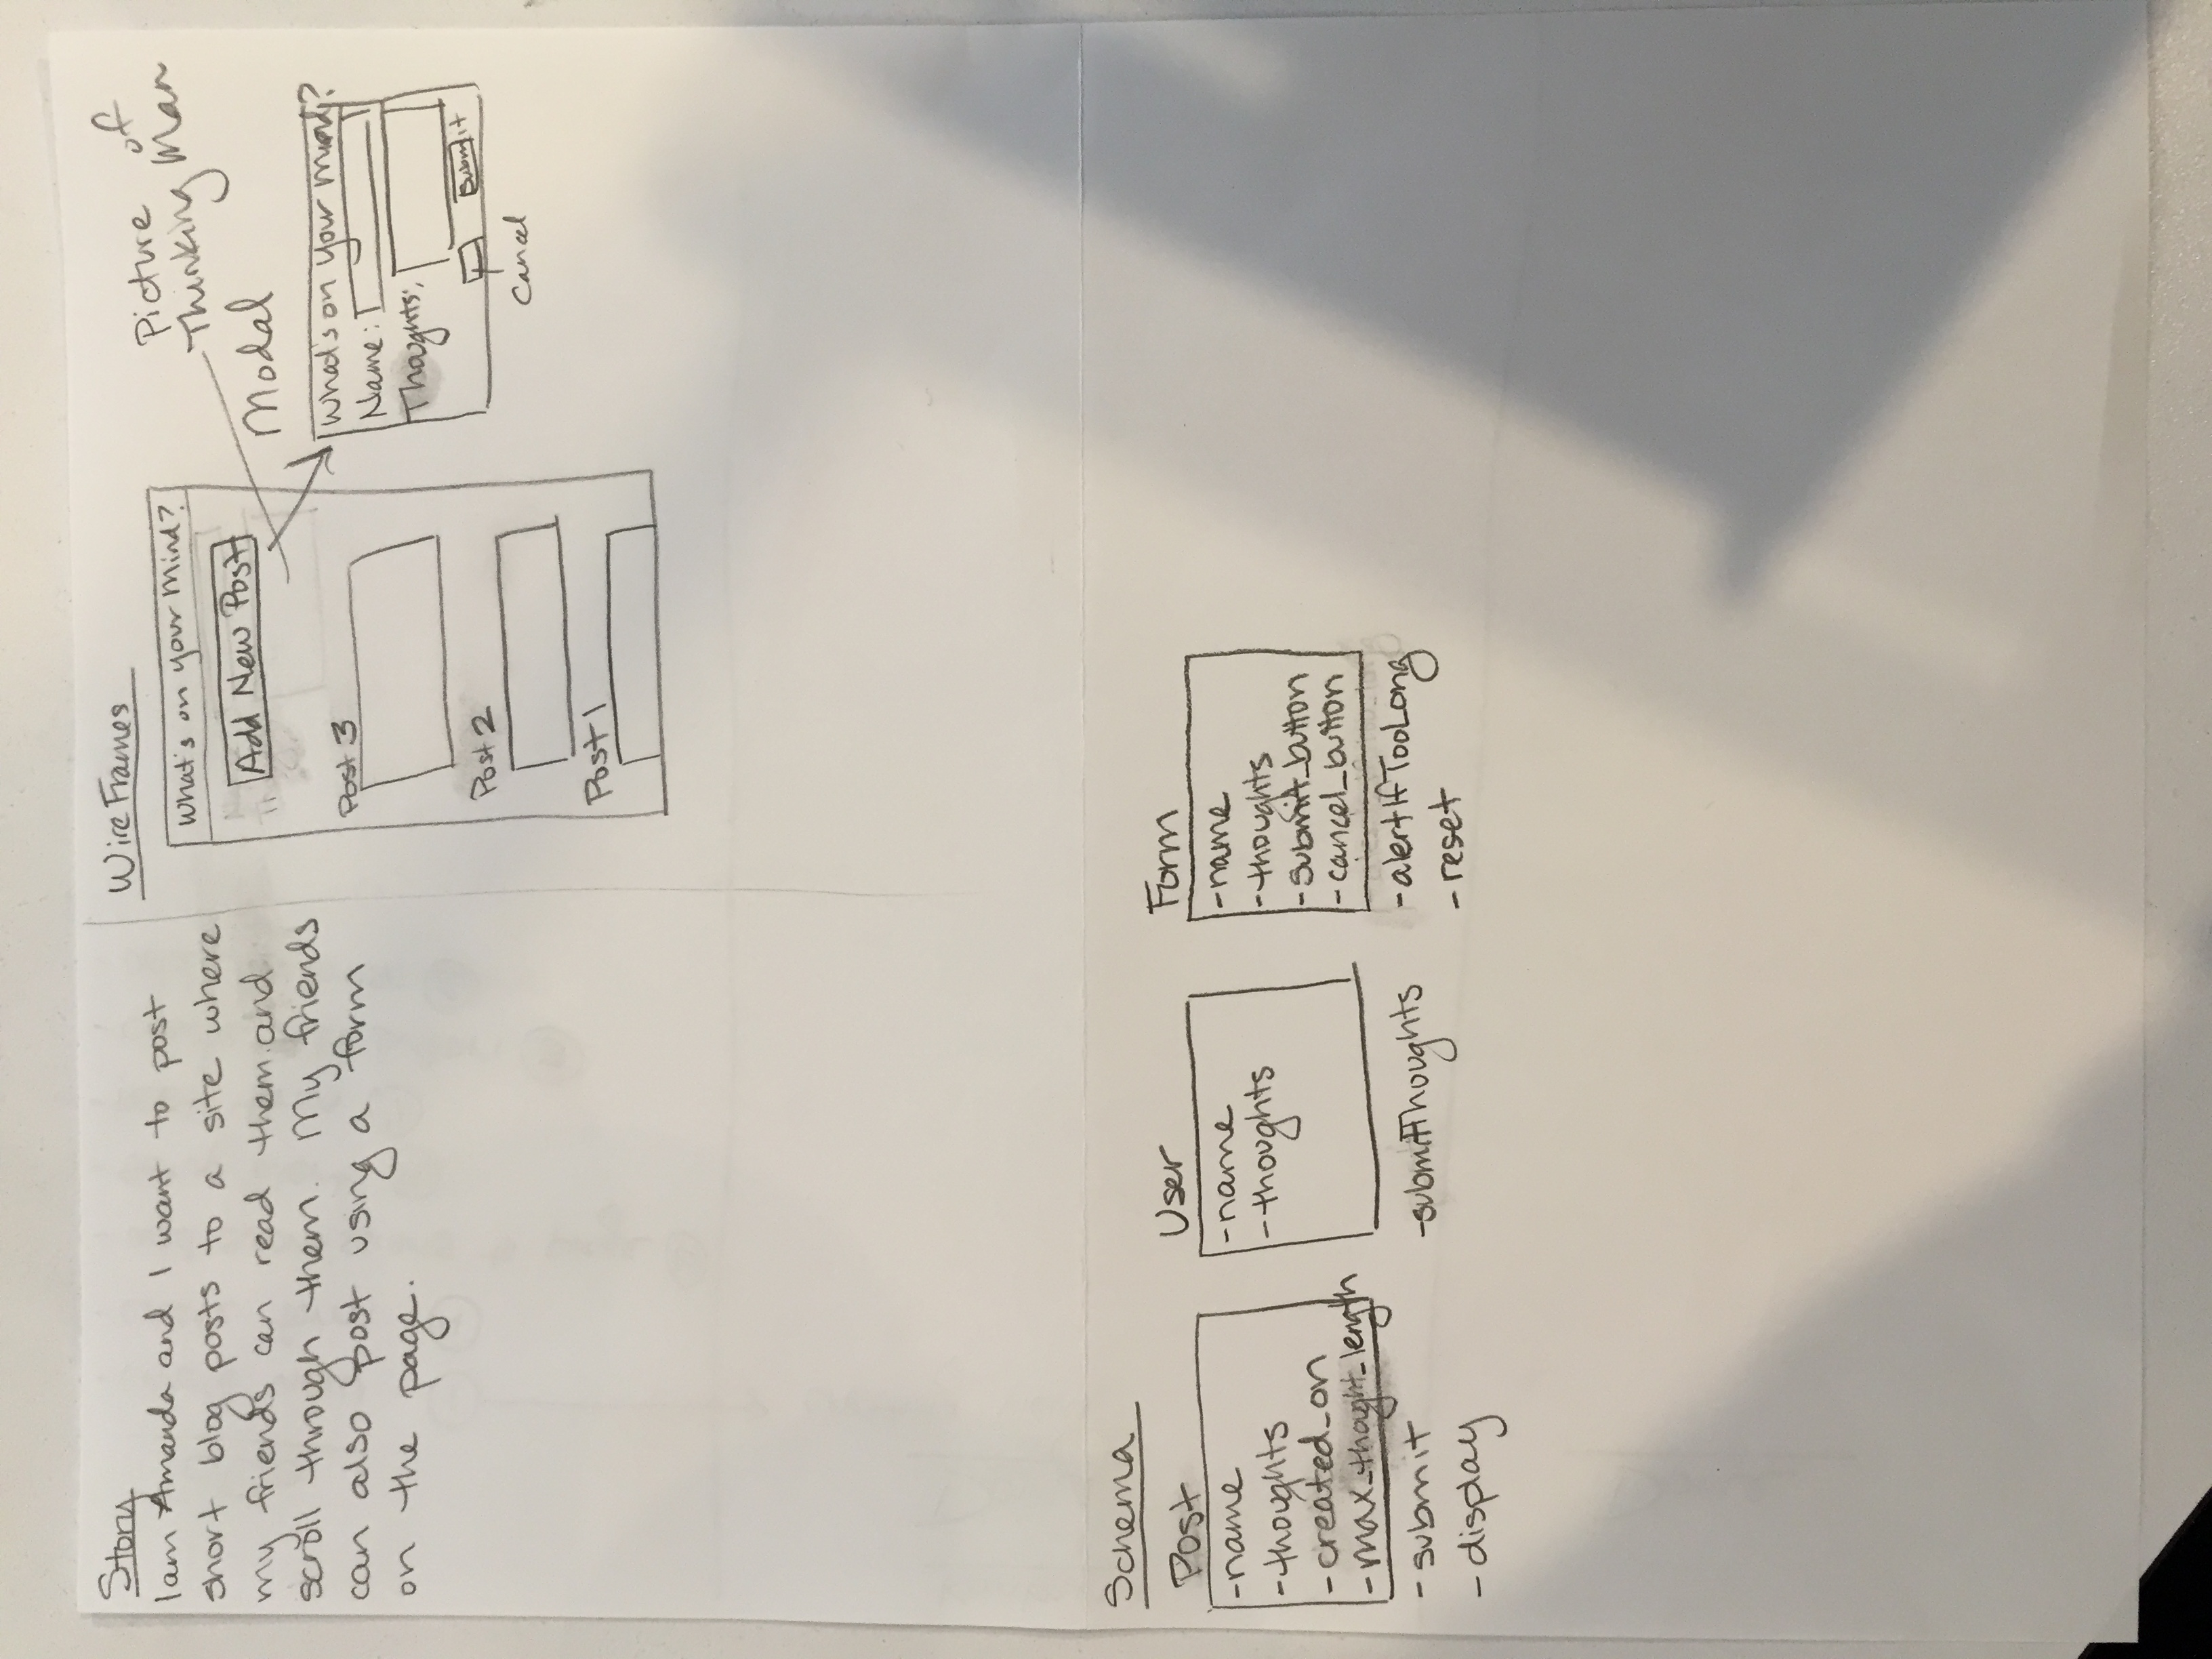 Story
I am Amanda and I want to post
short blog posts to a site where
my friends can read them and
scroll through them. My friends
can also post using a form
on the page.
Wire Frames
What's on your Mind?
Add New Post
Post 3
Post 2
Post 1
Picture of
Thinking Man
Modal
What's on your mind?
Name:
Thoughts:
Submit
Cancel
Schema
Post
-name
-thoughts
-created_on
-max_thought_length
-submit
-display
User
-name
-thoughts
-submitThoughts
Form
-name
-thoughts
-submit_button
-cancel_button
-alertIfTooLong
-reset